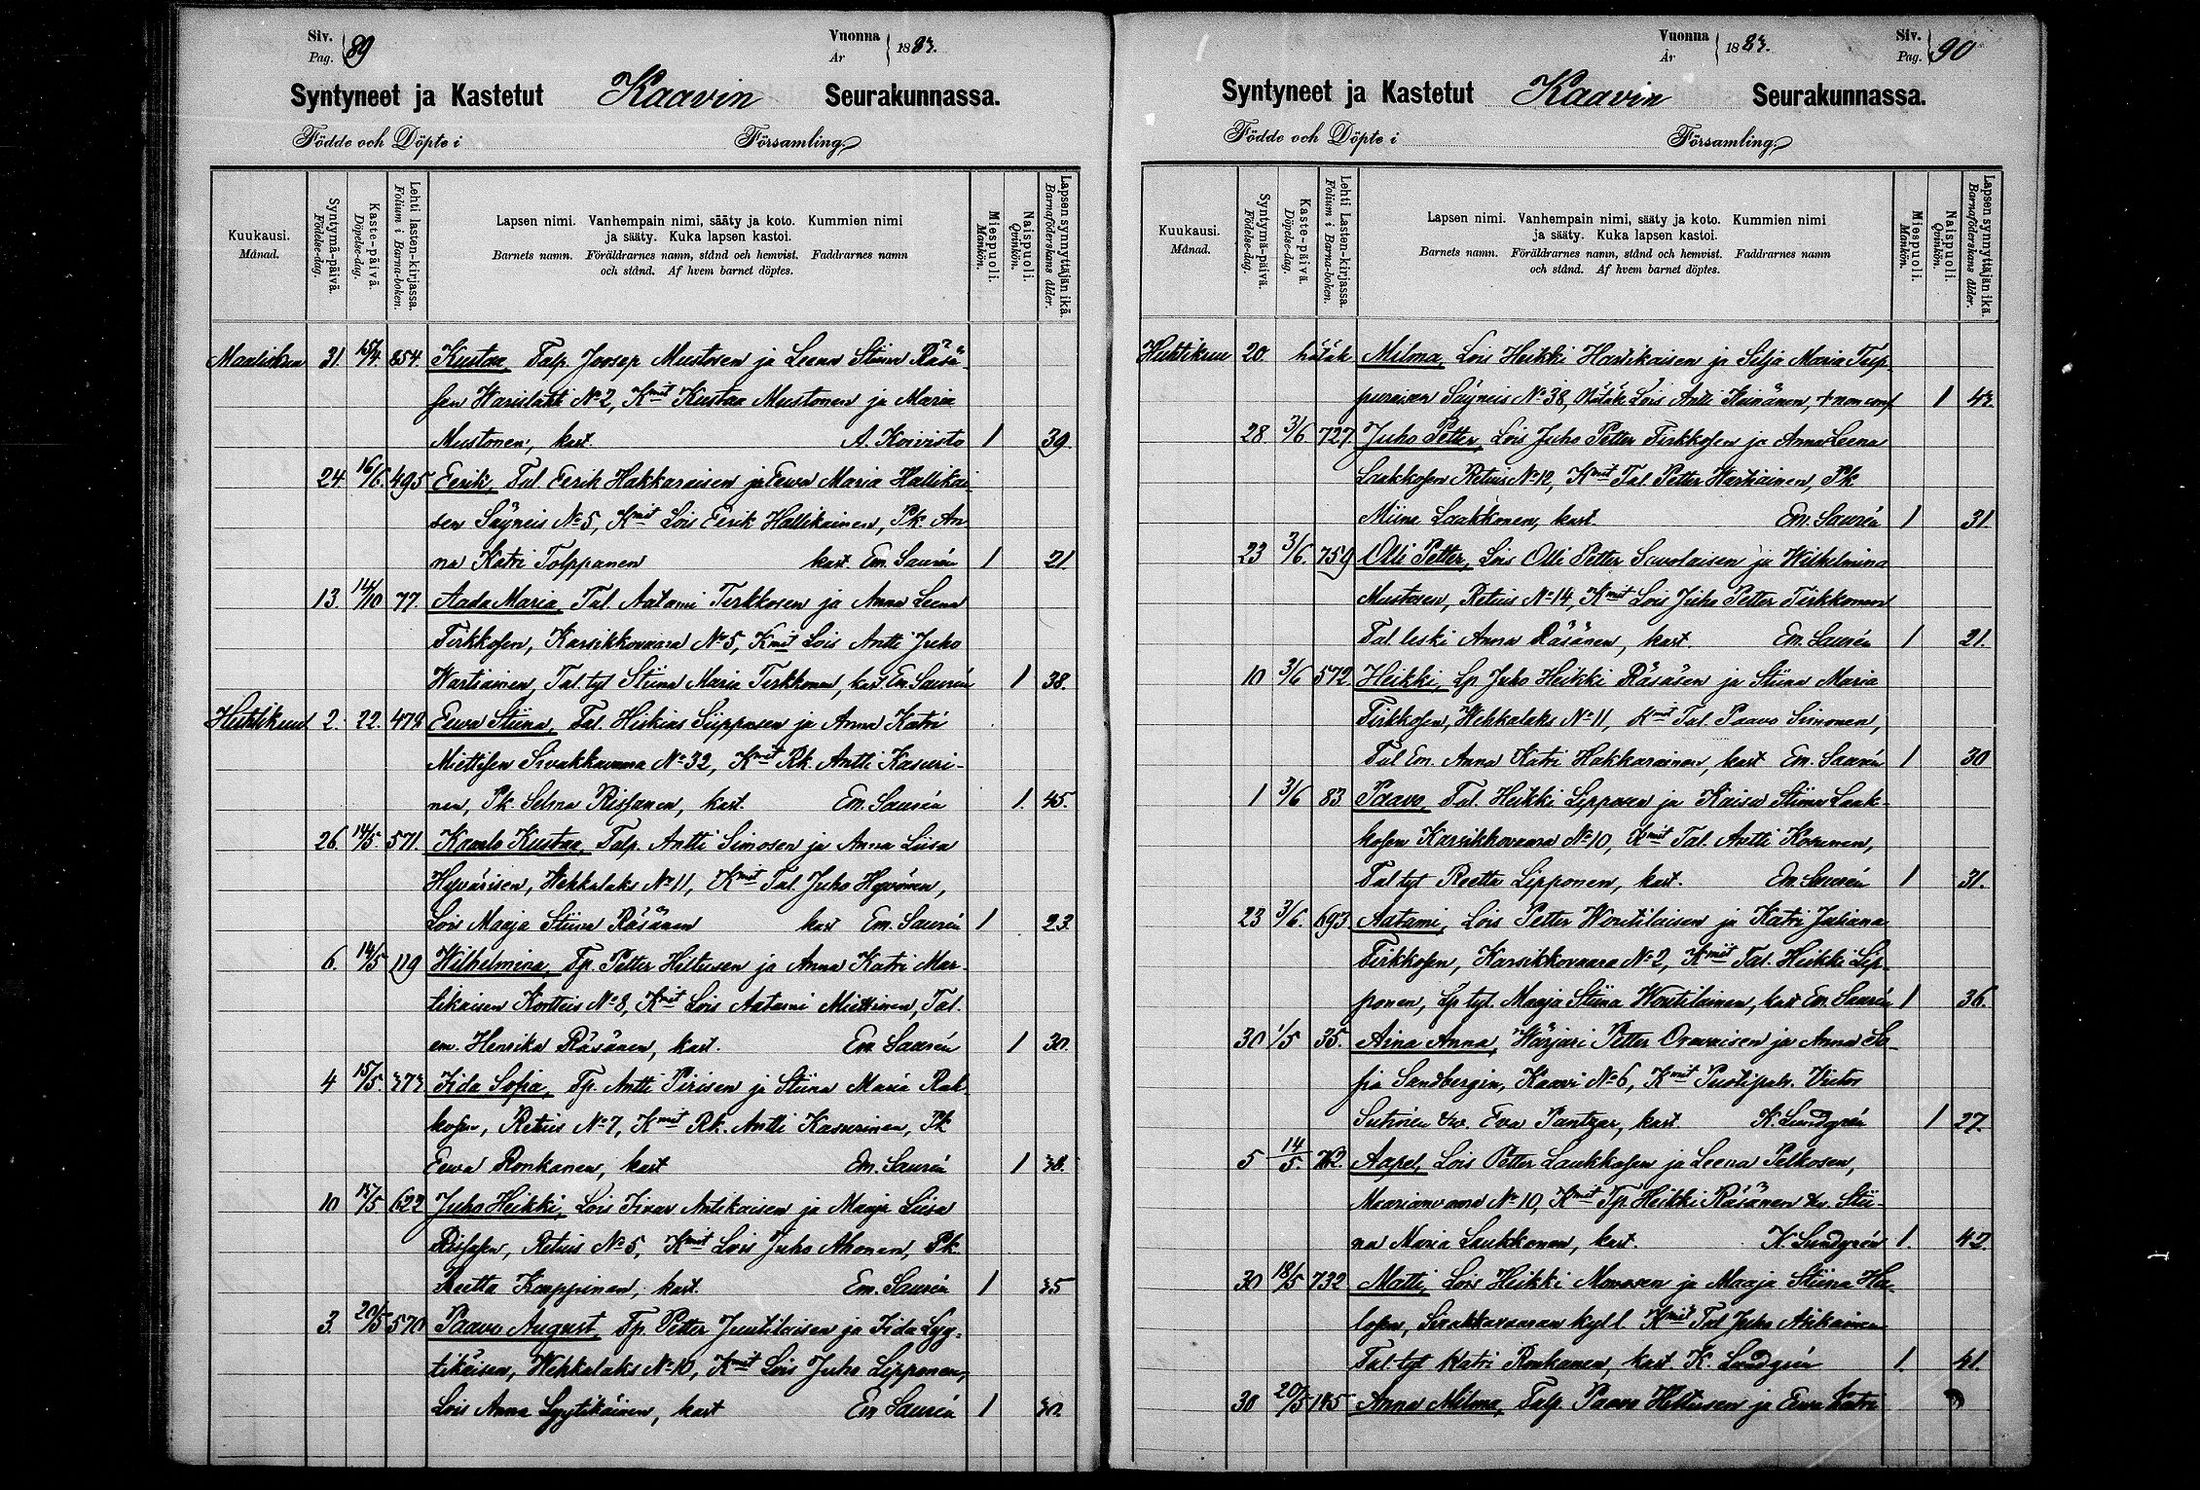 Siv. Pag. 89
Vuonna År 1883.
Syntyneet ja Kastetut Kaavin Seurakunnassa.
Födde och Döpte i Församling.
Kuukausi. Månad.
Syntymä-päivä. Födelse-dag.
Kaste-päivä. Döpelse-dag.
Lehti lasten-kirjassa. Folium i Barna-boken.
Lapsen nimi. Vanhempain nimi, sääty ja koto. Kummien nimi
ja sääty. Kuka lapsen kastoi.
Barnets namn. Föräldrarnes namn, stånd och hemvist. Faddrarnes namn
och stånd. Af hvem barnet döptes.
Miespuoli. Mankön.
Naispuoli. Qvinkön.
Lapsen synnyttäjän ikä. Barnaföderskans ålder.
Maaliskuu 31. 15/4. 854. Kustaa, Talp. Joosep Mustosen ja Leena Stiina Räsä-
sen Warislahti No 2, Kmit Kustaa Mustonen ja Maria
Mustonen, kast. A. Koivisto 1 39.
24. 16/6. 495 Eerik, Tal. Eerik Hakkaraisen ja Eewa Maria Hallikai-
sen Säyneis No 5, Kmit Lois Eerik Hallikainen, Pk. An-
na Katri Tolppanen kast. Em. Saurén 1 21.
13. 14/10 77. Aada Maria, Tal. Aatami Tirkkosen ja Anna Leena
Tirkkosen, Karsikkovaara No 5, Kmit Lois Antti Juho
Wartiainen, Tal. tyt Stiina Maria Tirkkonen, kast Em. Saurén 1 38.
Huhtikuu 2. 22. 478. Eewa Stiina, Tal. Hiskias Sipposen ja Anna Katri
Miettisen Sivakkavaara No 32, Kmit Rk. Antti Kasuri-
nen, Pk. Selma Rissanen, kast. Em. Saurén 1. 45.
26. 14/5. 571. Kaarlo Kustaa, Talp. Antti Simosen ja Anna Liisa
Hyvärisen, Wehkalaks No 11, Kmit Tal. Juho Hyvönen,
Lois Maaja Stiina Räsänen kast Em. Saurén 1 23.
6. 14/5 119 Wilhelmina, Tp. Petter Hiltusen ja Anna Katri Mar-
tikaisen Kortteis No 8, Kmit Lois Aatami Miettinen, Tal.
em. Henrika Räsänen, kast. Em. Saurén 1 30.
4 15/5. 373 Iida Sofia, Tp. Antti Pirisen ja Stiina Maria Rak-
kosen, Retuis No 7, Kmit Rk. Antti Kasurinen, Pk
Eewa Ronkanen, kast Em. Saurén 1
10 15/5 622 Juho Heikki, Lois Iivar Antikaisen ja Maaja Liisa
Rissasen, Retuis No 5, Kmit Lois Juho Ahonen, Pk.
Reetta Kauppinen, kast. Em. Saurén 1 35
3. 20/5 570 Paavo August, Tp. Petter Juutilaisen ja Iida Lyy-
tikäisen, Wehkalaks No 10, Kmit Lois Juho Lipponen,
Lois Anna Lyytikäinen, kast Em Saurén 1 30.
Vuonna År 1883.
Siv. Pag. 90
Syntyneet ja Kastetut Kaavin Seurakunnassa.
Födde och Döpte i Församling.
Kuukausi. Månad.
Syntymä-päivä. Födelse-dag.
Kaste-päivä. Döpelse-dag.
Lehti Lasten-kirjassa. Folium i Barna-boken.
Lapsen nimi. Vanhempain nimi, sääty ja koto. Kummien nimi
ja sääty. Kuka lapsen kastoi.
Barnets namn. Föräldrarnes namn, stånd och hemvist. Faddrarnes namn
och stånd. Af hvem barnet döptes.
Miespuoli. Mankön.
Naispuoli. Qvinkön.
Lapsen synnyttäjän ikä. Barnaföderskans ålder.
Huhtikuu 20. hätäk Milma, Lois Heikki Hartikaisen ja Silja Maria Tup-
puraisen Säyneis No 38, Hätäk. Lois Antti Heinänen, + non conf 1 43.
28 3/6 727. Juho Petter, Lois Juho Petter Tirkkosen ja Anna Leena
Laakkosen Retuis No 12, Kmit Tal. Petter Wartiainen, Pk
Miina Laakkonen, kast. Em. Saurén 1 31.
23 3/6. 759 Olli Petter, Lois Olli Petter Savolaisen ja Wilhelmina
Mustosen, Retuis No 14, Kmit Lois Juho Petter Tirkkonen
Tal. leski Anna Räsänen, kast. Em. Saurén 1 21.
10 3/6 572. Heikki, Lp Juho Heikki Räsäsen ja Stiina Maria
Tirkkosen, Wehkalaks No 11, Kmit Tal. Paavo Simonen,
Tal Em. Anna Katri Hakkarainen, kast Em. Saurén 1 30
1 3/6 83. Paavo, Tal. Heikki Lipposen ja Kaisa Stiina Laak-
kosen Karsikkovaara No 10, Kmit Tal. Antti Kosunen,
Tal tyt Reetta Lipponen, kast. Em. Saurén 1 31.
23 3/6. 693 Aatami, Lois Petter Woutilaisen ja Katri Juliana
Tirkkosen, Karsikkovaara No 2, Kmit Tal. Heikki Lip-
ponen, Lp tyt. Maaja Stiina Woutilainen, kast Em. Saurén 1 36.
30 1/5 35. Aina Anna, Wärjäri Petter Oravaisen ja Anna So-
fia Sandbergin, Kaavi No 6, Kmit Puolipäh. Victor
Sutinen &v. Eva Pantzar, kast. K. Lundgrén 1 27.
5 14/5. Aapel, Lois Petter Laukkosen ja Leena Pelkosen,
Maarianvaara No 10, Kmit Tp. Heikki Räsänen &v. Stii-
na Maria Laukkonen, kast. K. Lundgrén 1. 42.
30 18/5 732 Matti, Lois Heikki Monosen ja Maaja Stiina Ha-
losen, Sivakkavaaran kyl l. Kmit Tal Juho Asikainen
Tal. tyt Katri Ronkanen, kast. K. Lundgrén 1. 41.
30 20/5 145 Anna Milma, Talp. Paavo Hiltusen ja Eewa Katri